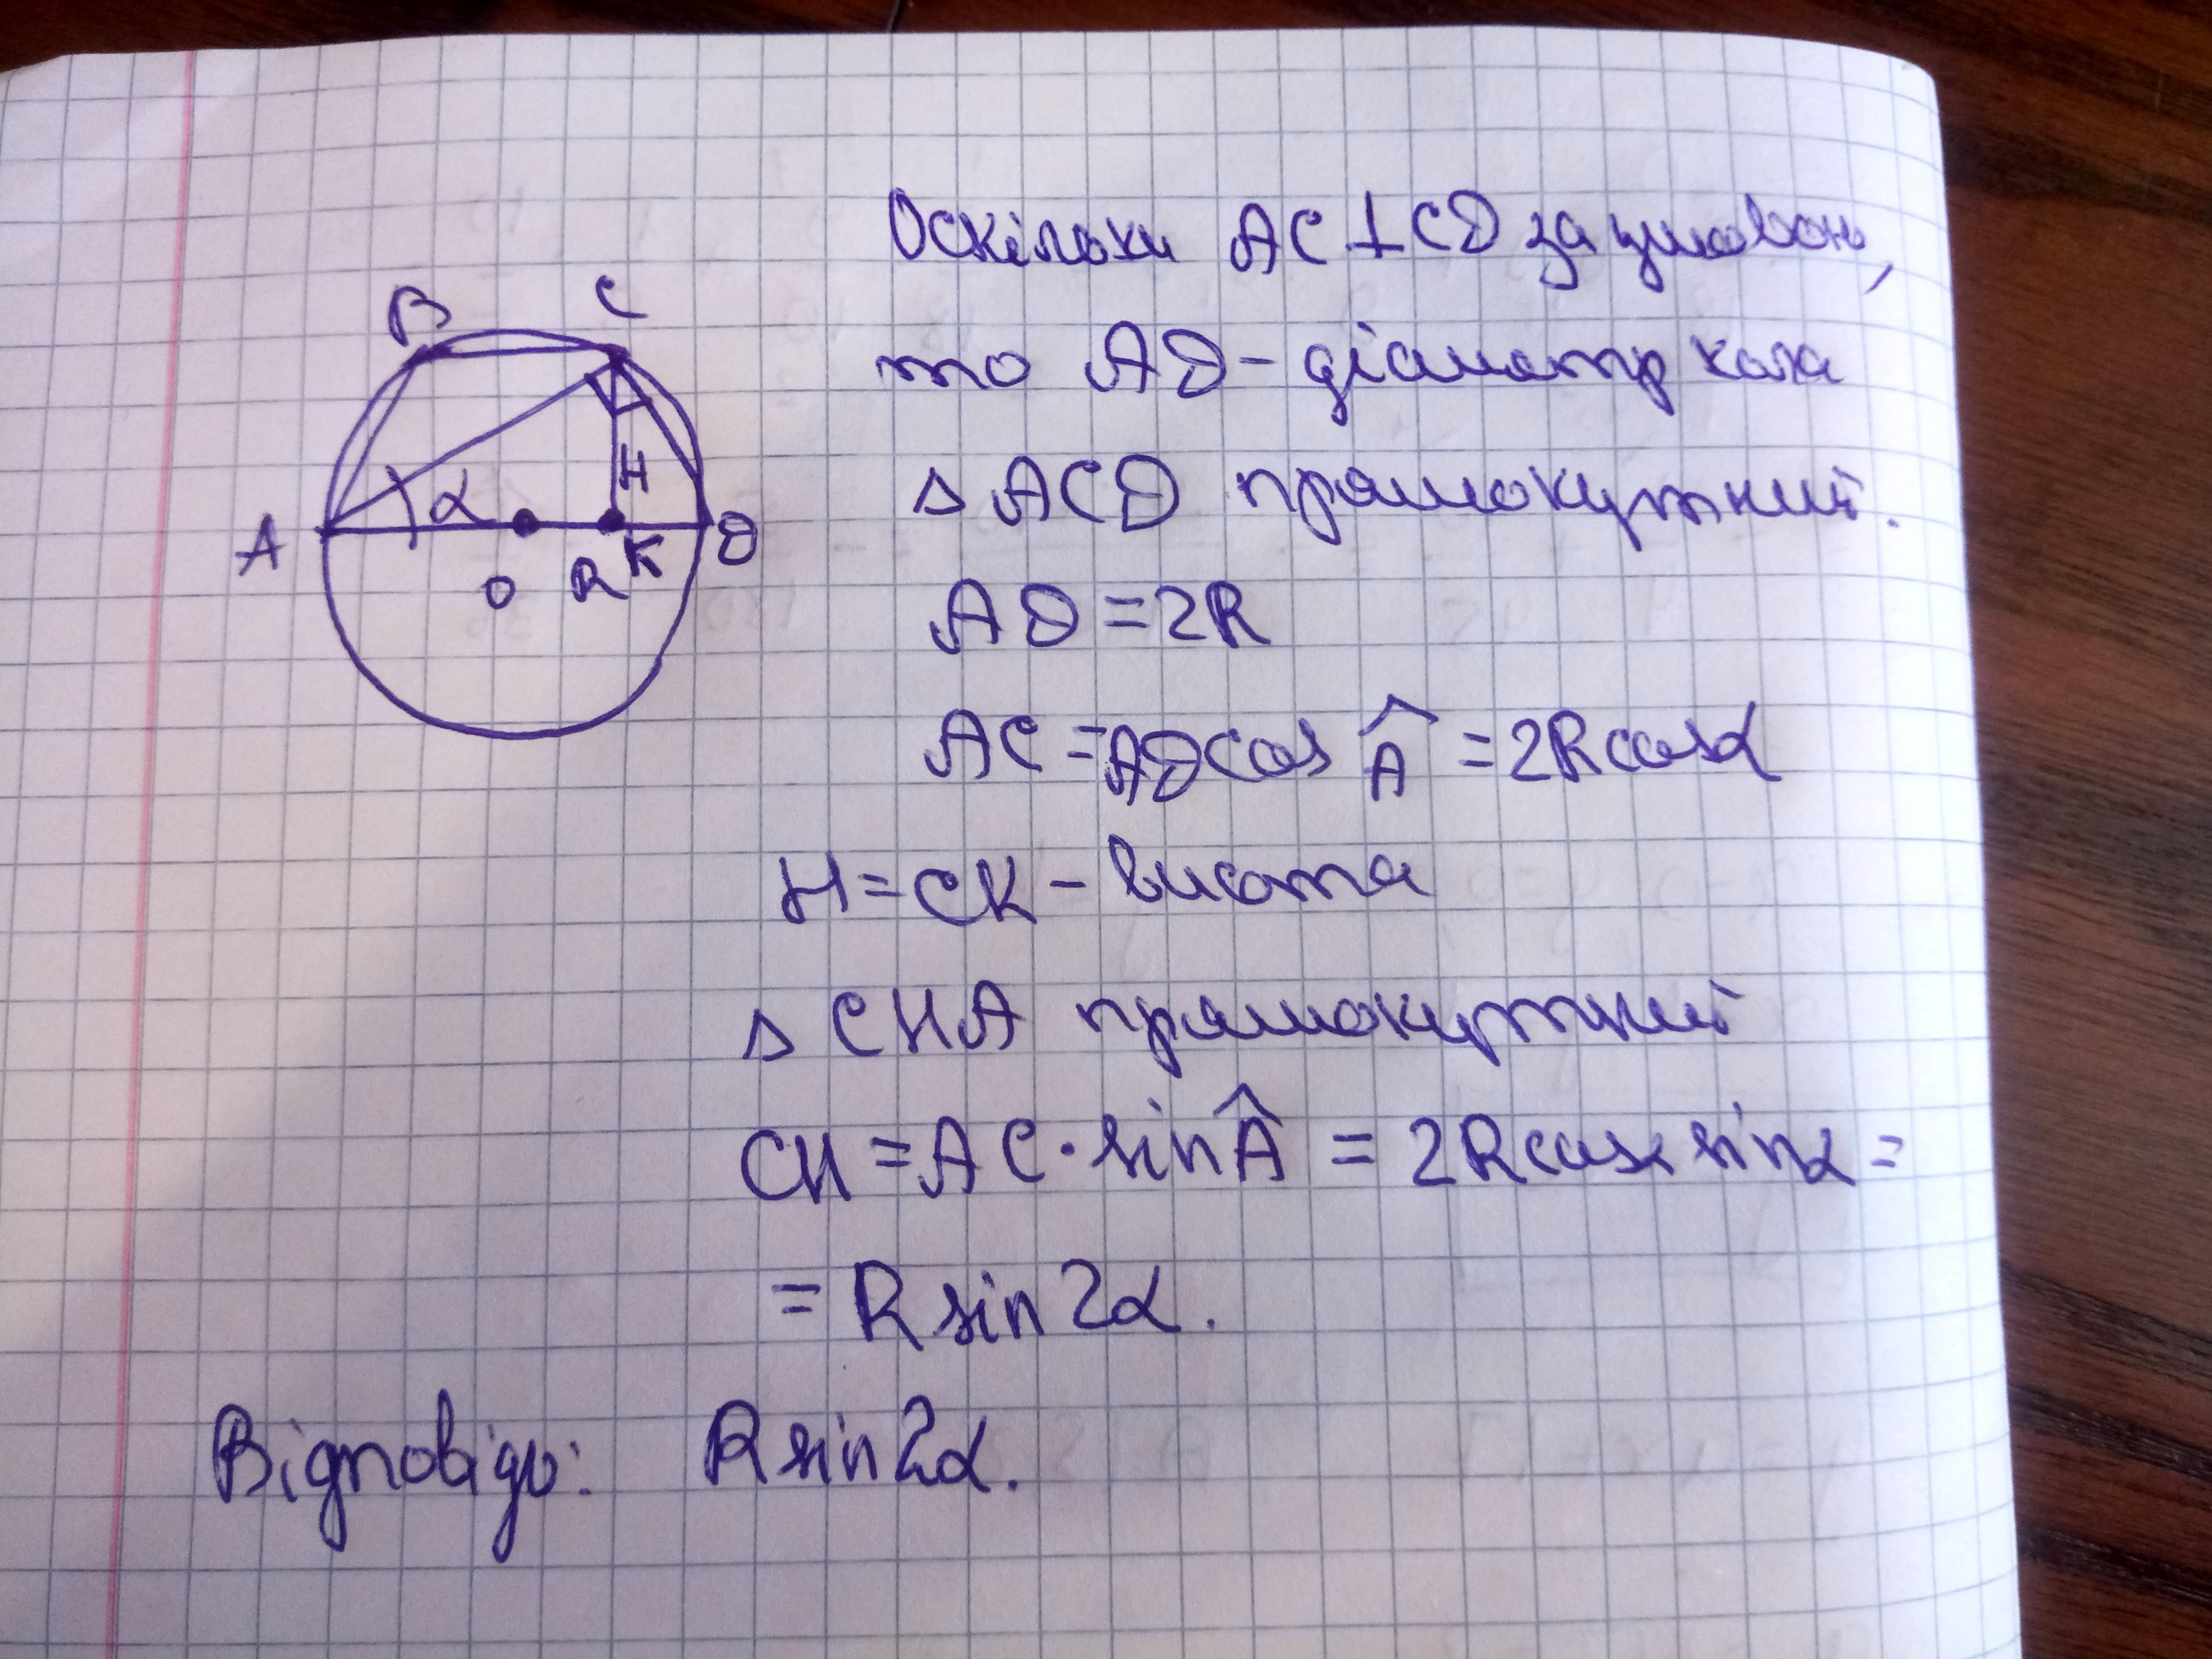 B C
Оскільки AC⊥CD за умовою,
то AD - діаметр кола
α H
A O R K D
△ ACD прямокутний.
AD = 2R
AC = AD cos Â = 2R cosα
H = CK - висота
△ CKA прямокутний
CK = AC · sin Â = 2R cosα sinα =
= R sin 2α.
Відповідь: R sin 2α.